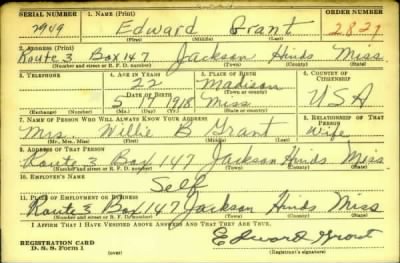 SERIAL NUMBER 1. NAME (Print) ORDER NUMBER
2949 Edward Grant 2829
(First) (Middle) (Last)
2. ADDRESS (Print)
Route 3 Box 147 Jackson Hinds Miss
(Number and street or R. F. D. number) (Town) (County) (State)
3. TELEPHONE 4. AGE IN YEARS 5. PLACE OF BIRTH 6. COUNTRY OF CITIZENSHIP
22 Madison
DATE OF BIRTH
5 17 1918 Miss. USA
(Exchange) (Number) (Mo.) (Day) (Yr.) (State or country)
7. NAME OF PERSON WHO WILL ALWAYS KNOW YOUR ADDRESS 8. RELATIONSHIP OF THAT PERSON
Mrs. Willie B Grant wife
(Mr., Mrs., Miss) (First) (Middle) (Last)
9. ADDRESS OF THAT PERSON
Route 3 Box 147 Jackson Hinds Miss
(Number and street or R. F. D. number) (Town) (County) (State)
10. EMPLOYER'S NAME
Self
11. PLACE OF EMPLOYMENT OR BUSINESS
Route 3 Box 147 Jackson Hinds Miss
(Number and street or R. F. D. number) (Town) (County) (State)
I AFFIRM THAT I HAVE VERIFIED ABOVE ANSWERS AND THAT THEY ARE TRUE.
REGISTRATION CARD Edward Grant
D. S. S. Form 1 (over) (Registrant's signature)